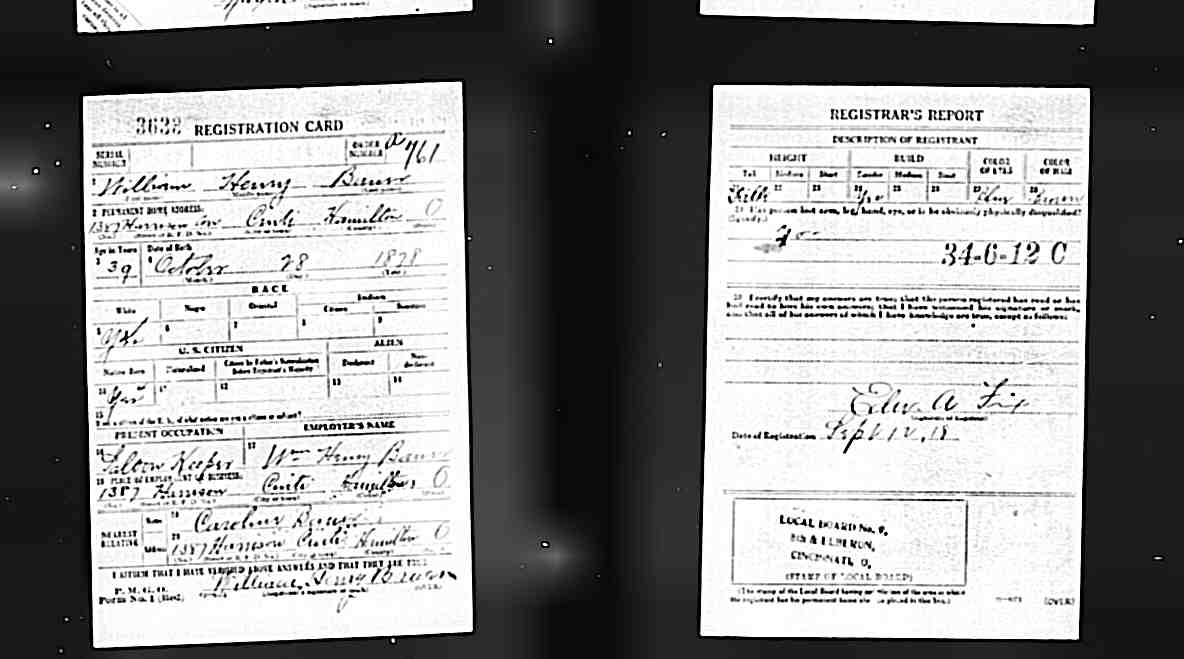 3638 REGISTRATION CARD
SERIAL NUMBER
ORDER NUMBER a 761
1 William Henry
2 PERMANENT HOME ADDRESS:
1387 Harrison Cinti Hamilton O
Age in Years Date of Birth
3 39 4 October 28 1878
(Month.) (Day.) (Year.)
RACE
White Negro Oriental Indian
Citizen
5 Yes 6 7 8 9
U. S. CITIZEN ALIEN
Native Born Naturalized Citizen by Father's Naturalization Before Registrant's Majority Declarant Non-declarant
10 Yes 11 12 13 14
15
PRESENT OCCUPATION EMPLOYER'S NAME
16 Saloon Keeper 17 Wm Henry
18 PLACE OF EMPLOYMENT OR BUSINESS:
1387 Harrison Cinti Hamilton O
NEAREST RELATIVE
Name 19 Caroline
Address 20 1387 Harrison Cinti Hamilton O
I AFFIRM THAT I HAVE VERIFIED ABOVE ANSWERS AND THAT THEY ARE TRUE
P. M. G. O.
Form No. 1 (Red) William Henry
(Registrant's signature or mark) (OVER)
REGISTRAR'S REPORT
DESCRIPTION OF REGISTRANT
HEIGHT BUILD COLOR OF EYES COLOR OF HAIR
Tall Medium Short Slender Medium Stout
22 23 Yes 25 26 27 Blue 28 Brown
29 Has person lost arm, leg, hand, eye, or is he obviously physically disqualified?
(Specify.)
34-6-12 C
30 I certify that my answers are true; that the person registered has read or has
had read to him his own answers; that I have witnessed his signature or mark,
and that all of his answers of which I have knowledge are true, except as follows:
Edw. A
(Signature of Registrar)
Date of Registration Sept 12, 18
LOCAL BOARD No. 9,
8th & ELBERON,
CINCINNATI, O.
(STAMP OF LOCAL BOARD)
(The stamp of the Local Board having jurisdiction of the area in which
the registrant has his permanent home shall be placed in this box.)
(OVER)